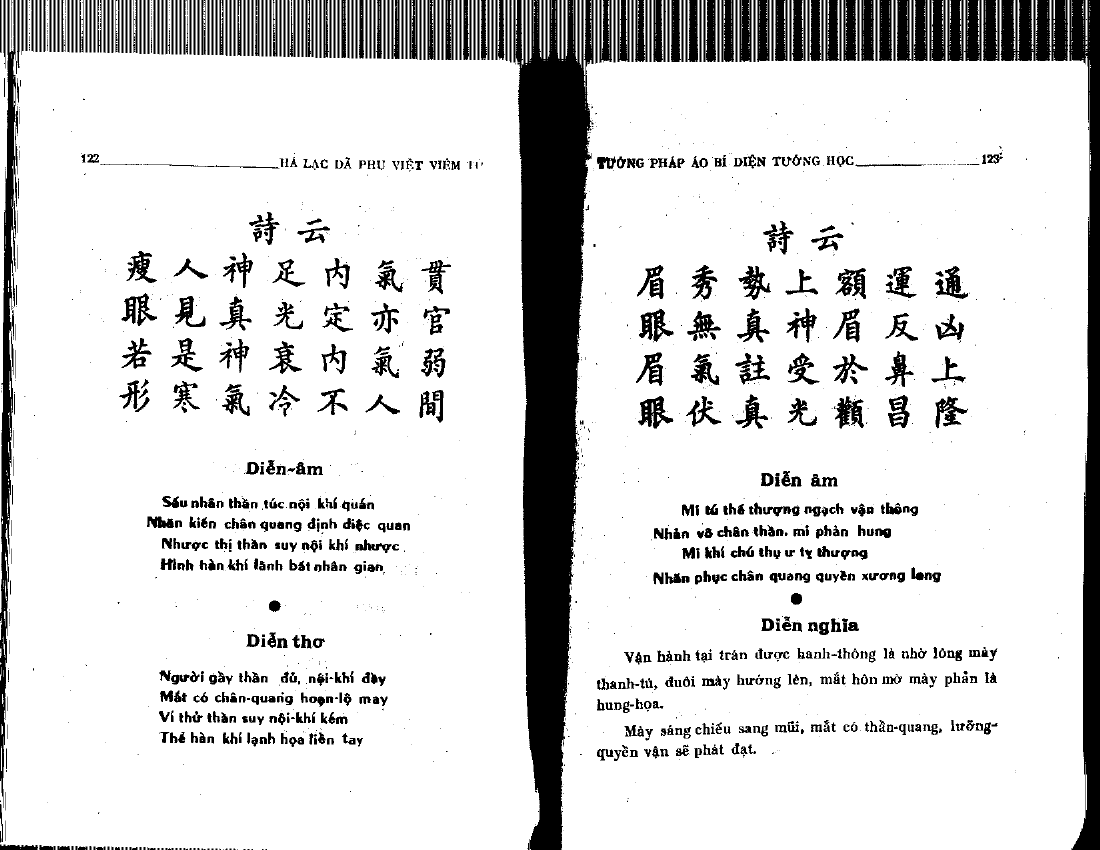 122 HÀ LẠC DÃ PHU VIỆT VIÊM TỬ
詩云
瘦人神足内氣貫
眼見真光定亦官
若是神衰内氣弱
形寒氣冷不人間
Diễn-âm
Sấu nhân thần túc nội khí quán
Nhãn kiến chân quang định diệc quan
Nhược thị thần suy nội khí nhược
Hình hàn khí lãnh bất nhân gian
Diễn thơ
Người gầy thần đủ, nội-khí đầy
Mắt có chân-quang hoạn-lộ may
Ví thử thần suy nội-khí kém
Thể hàn khí lạnh họa liền tay
TƯỚNG PHÁP ÁO BÍ DIỆN TƯỚNG HỌC 123
詩云
眉秀勢上額運通
眼無真神眉反凶
眉氣註受於鼻上
眼伏真光顴昌隆
Diễn âm
Mi tú thế thượng ngạch vận thông
Nhãn vô chân thần. mi phản hung
Mi khí chú thụ ư tỵ thượng
Nhãn phục chân quang quyền xương long
Diễn nghĩa
Vận hành tại trán được hanh-thông là nhờ lông mày
thanh-tú, đuôi mày hướng lên, mắt hôn mờ mày phản là
hung-họa.
Mày sáng chiếu sang mũi, mắt có thần-quang, lưỡng-
quyền vận sẽ phát đạt.